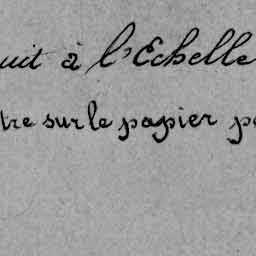 uit à l'Echelle
tre sur le papier p